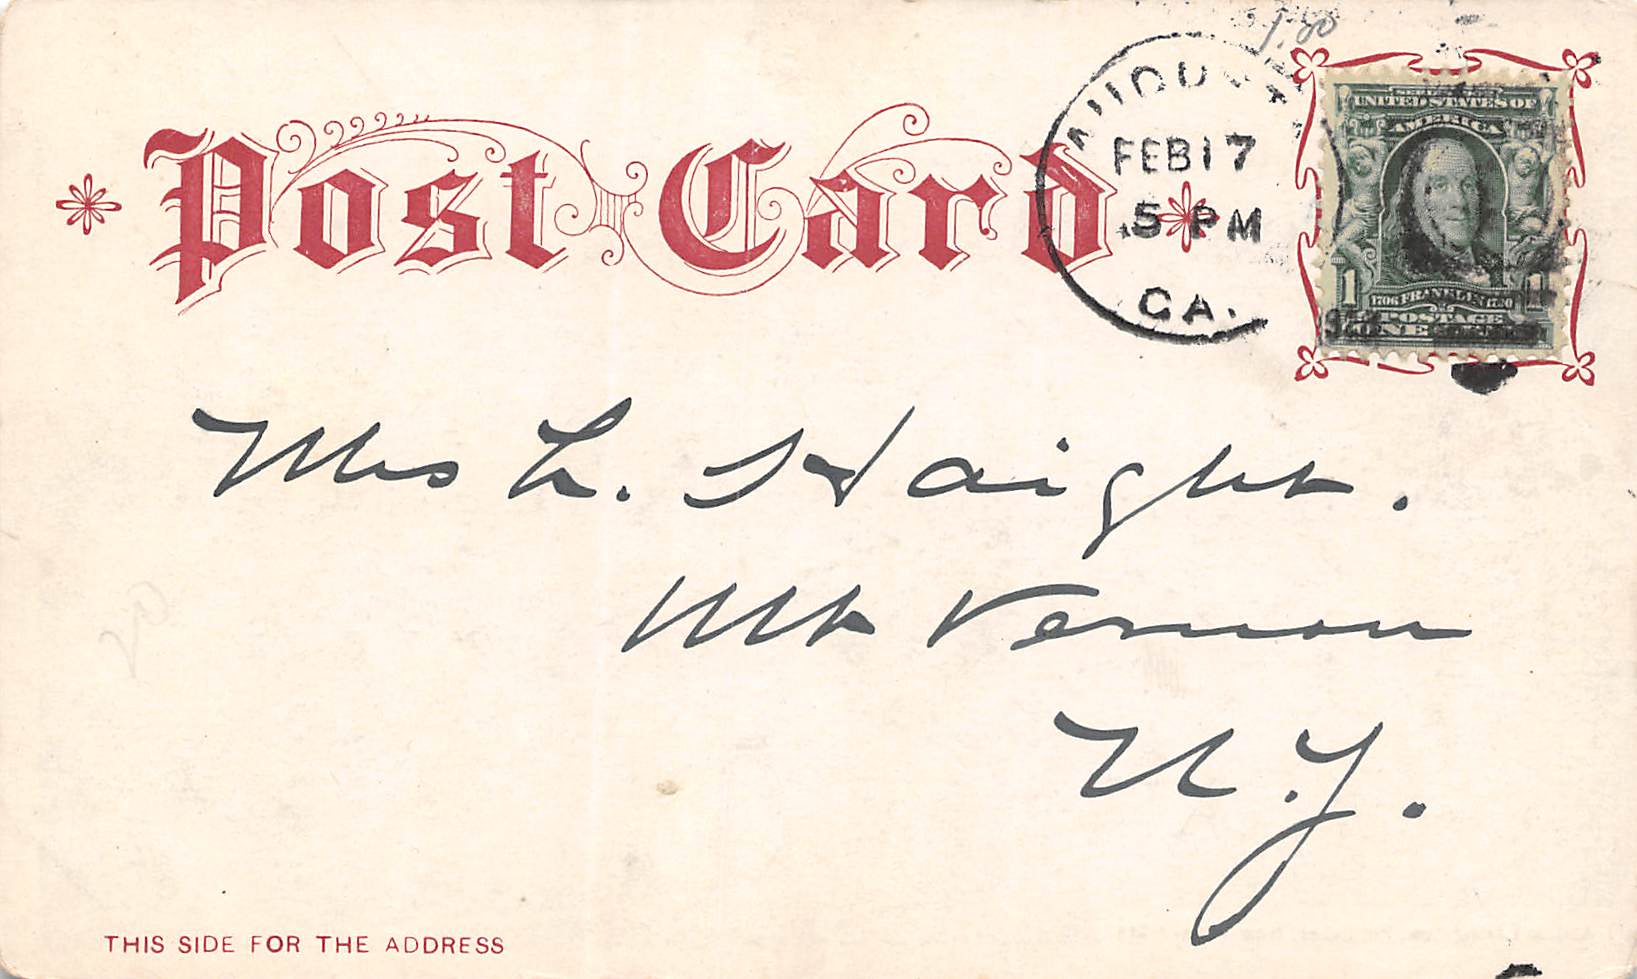 Post Card
FEB 17
5 PM
GA.
SERIES 1902
UNITED STATES OF
AMERICA
1 1
1706 FRANKLIN 1790
POSTAGE
ONE
Mrs L. Haight.
Mt Vernon
N.Y.
THIS SIDE FOR THE ADDRESS